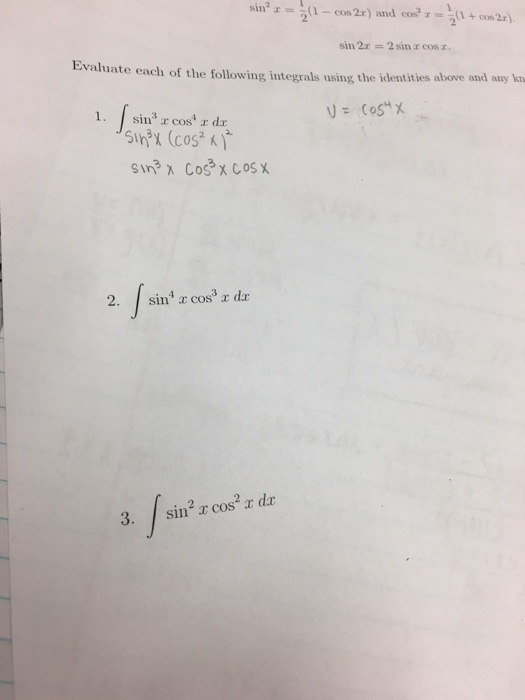 sin² x = 1/2(1 − cos 2x) and cos² x = 1/2(1 + cos 2x).
sin 2x = 2 sin x cos x.
Evaluate each of the following integrals using the identities above and any kn
1. ∫ sin³ x cos⁴ x dx
U = cos⁴x
sin³x (cos² x)²
sin³ x cos³x cosx
2. ∫ sin⁴ x cos³ x dx
3. ∫ sin² x cos² x dx